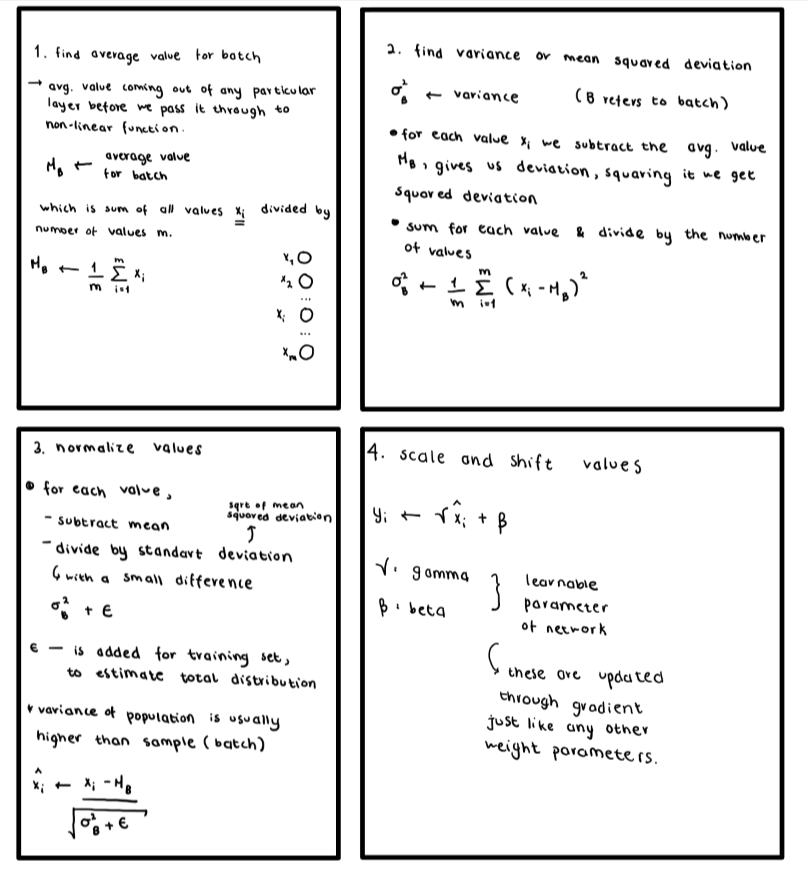 1. find average value for batch
→ avg. value coming out of any particular
layer before we pass it through to
non-linear function.
μ_B ← average value
for batch
which is sum of all values x_i divided by
number of values m.
μ_B ← 1/m Σ_{i=1}^{m} x_i
x_1 O
x_2 O
...
x_i O
...
x_m O
2. find variance or mean squared deviation
σ²_B ← variance (B refers to batch)
• for each value x_i we subtract the avg. value
μ_B, gives us deviation, squaring it we get
squared deviation
• sum for each value & divide by the number
of values
σ²_B ← 1/m Σ_{i=1}^{m} (x_i - μ_B)²
3. normalize values
• for each value,
- subtract mean
sqrt of mean
squared deviation
- divide by standart deviation
↳ with a small difference
σ²_B + ε
ε — is added for training set,
to estimate total distribution
* variance of population is usually
higher than sample (batch)
x̂_i ← (x_i - μ_B) / √(σ²_B + ε)
4. scale and shift values
y_i ← γ x̂_i + β
γ: gamma
β: beta
learnable
parameter
of network
these are updated
through gradient
just like any other
weight parameters.